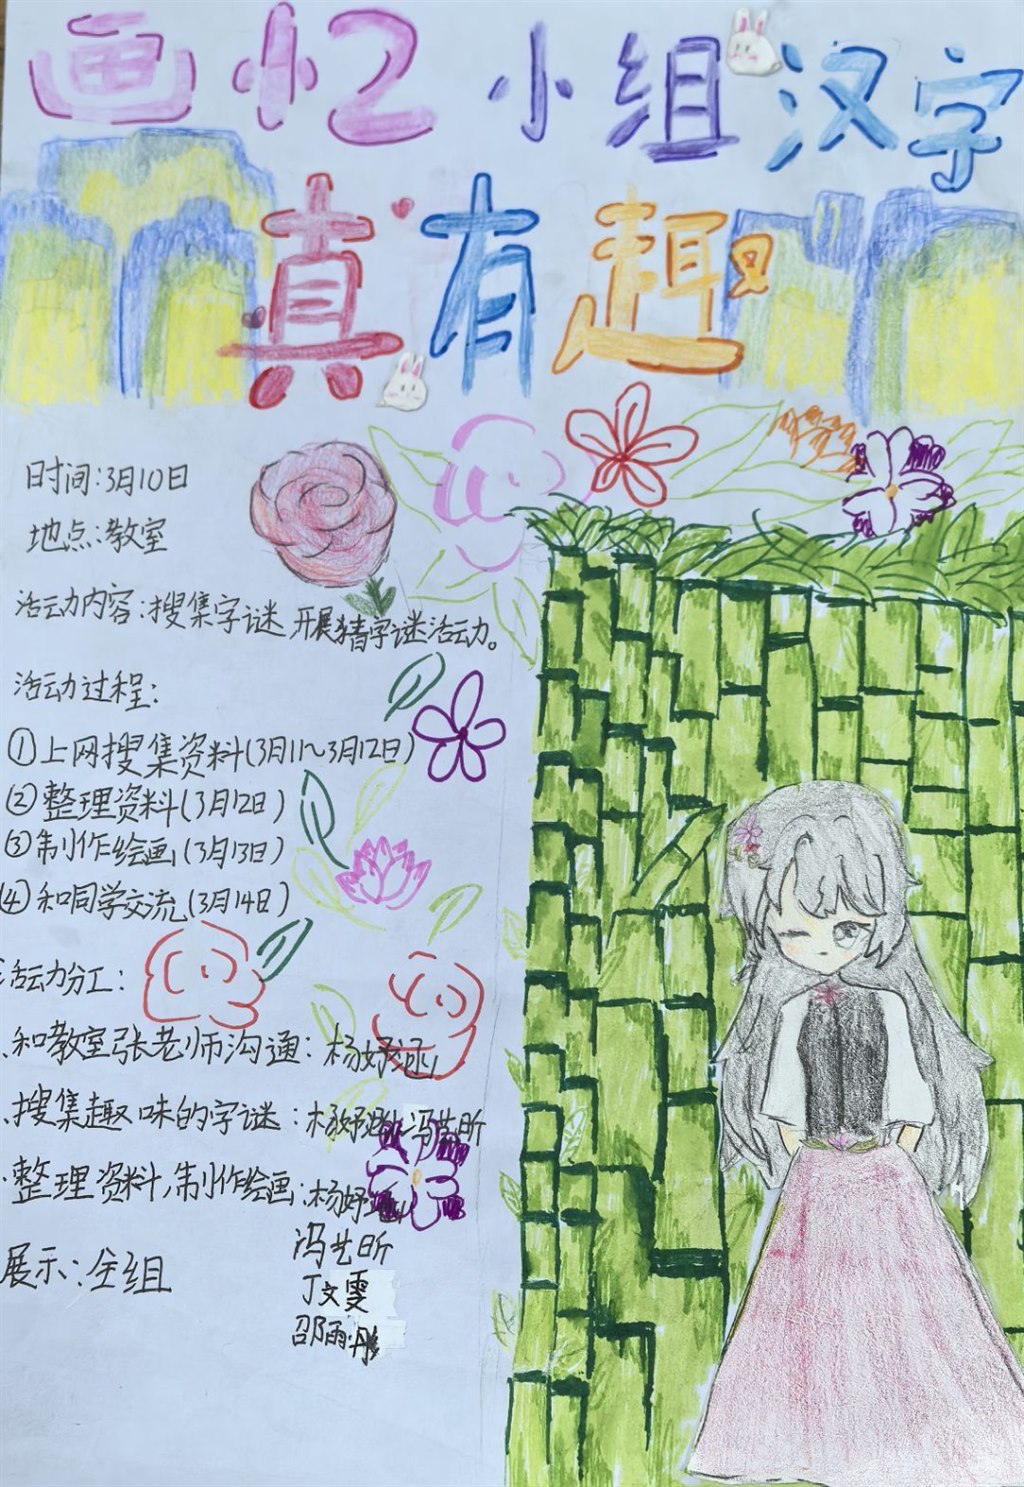 画忆小组汉字
真有趣
时间:3月10日
地点:教室
活动内容:搜集字谜 开展猜字谜活动。
活动过程:
①上网搜集资料(3月11~3月12日)
②整理资料(3月12日)
③制作绘画(3月13日)
④和同学交流(3月14日)
活动分工:
和教室张老师沟通:杨妤涵
搜集趣味的字谜:杨妤涵 冯艺昕
整理资料,制作绘画:杨妤
冯艺昕
丁文雯
邵雨彤
展示:全组